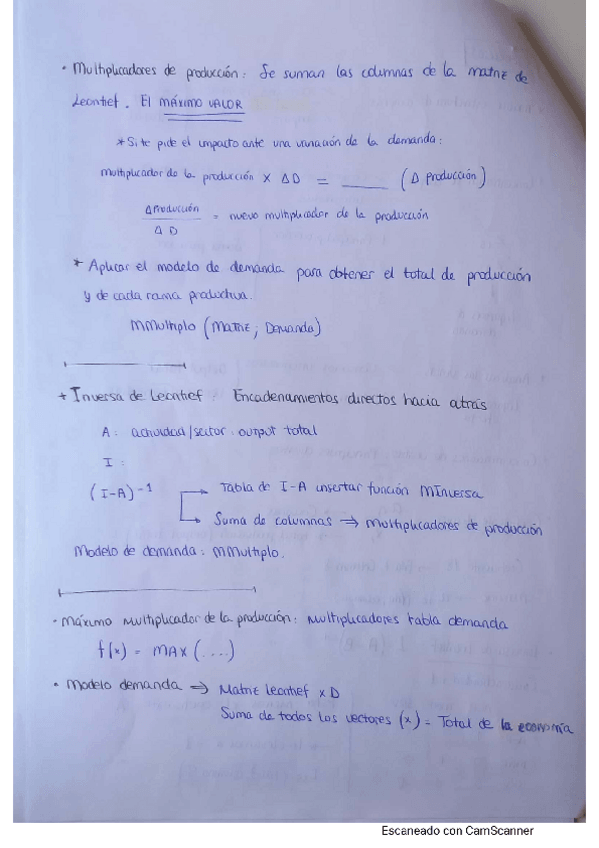 • Multiplicadores de producción: Se suman las columnas de la matriz de
Leontief. El MÁXIMO VALOR
* Si te pide el impacto ante una variación de la demanda:
multiplicador de la producción x ΔD = ______ (Δ producción)
ΔProducción / ΔD = nuevo multiplicador de la producción
* Aplicar el modelo de demanda para obtener el total de producción
y de cada rama productiva.
MMultiplo (Matriz; Demanda)
+ Inversa de Leontief: Encadenamientos directos hacia atrás
A: actividad/sector: output total
I:
(I-A)⁻¹ → Tabla de I-A insertar función MInversa
→ Suma de columnas ⇒ multiplicadores de producción
Modelo de demanda: MMultiplo.
• Máximo multiplicador de la producción: Multiplicadores tabla demanda
f(x) = MAX (....)
• Modelo demanda ⇒ Matriz Leontief x D
Suma de todos los vectores (x) = Total de la economía
Escaneado con CamScanner